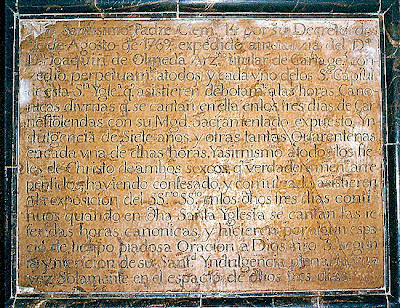 Nro. Santissimo Padre Clem. 14 por su Decreto de
de Agosto de 1769, expedido a instancia del D
D. Joaquin de Olmeda Arz. titular de Cartago, con
cedio perpetuam. a todos y cada vno de los Ss. Capitul
de esta Sta. Ygle. q. asistieren de bolara las horas Cano
nicas divrnas q. se cantan en ella en los tres dias de Car
nestolendas con su Mgd. Sacramentado expuesto, Yn
dulgencia de Siete años, y otras tantas Quarentenas
en cada vna de dhas horas. Y asimismo a todos los fie
les de Christo de ambos sexos, q. verdaderamente arre
pentidos, haviendo confesado, y comulgado, asistieren
a la exposicion del SSmo. SS. en los dhos tres dias conti
nuos quando en dha Santa Iglesia se cantan las re
feridas horas canonicas, y hicieren por algun espa
cio de tiempo piadosa Oracion a Dios nro. S. segun
la yntencion de su Santd. Yndulgencia plenaria vna
vez Solamente en el espacio de dhos tres dias